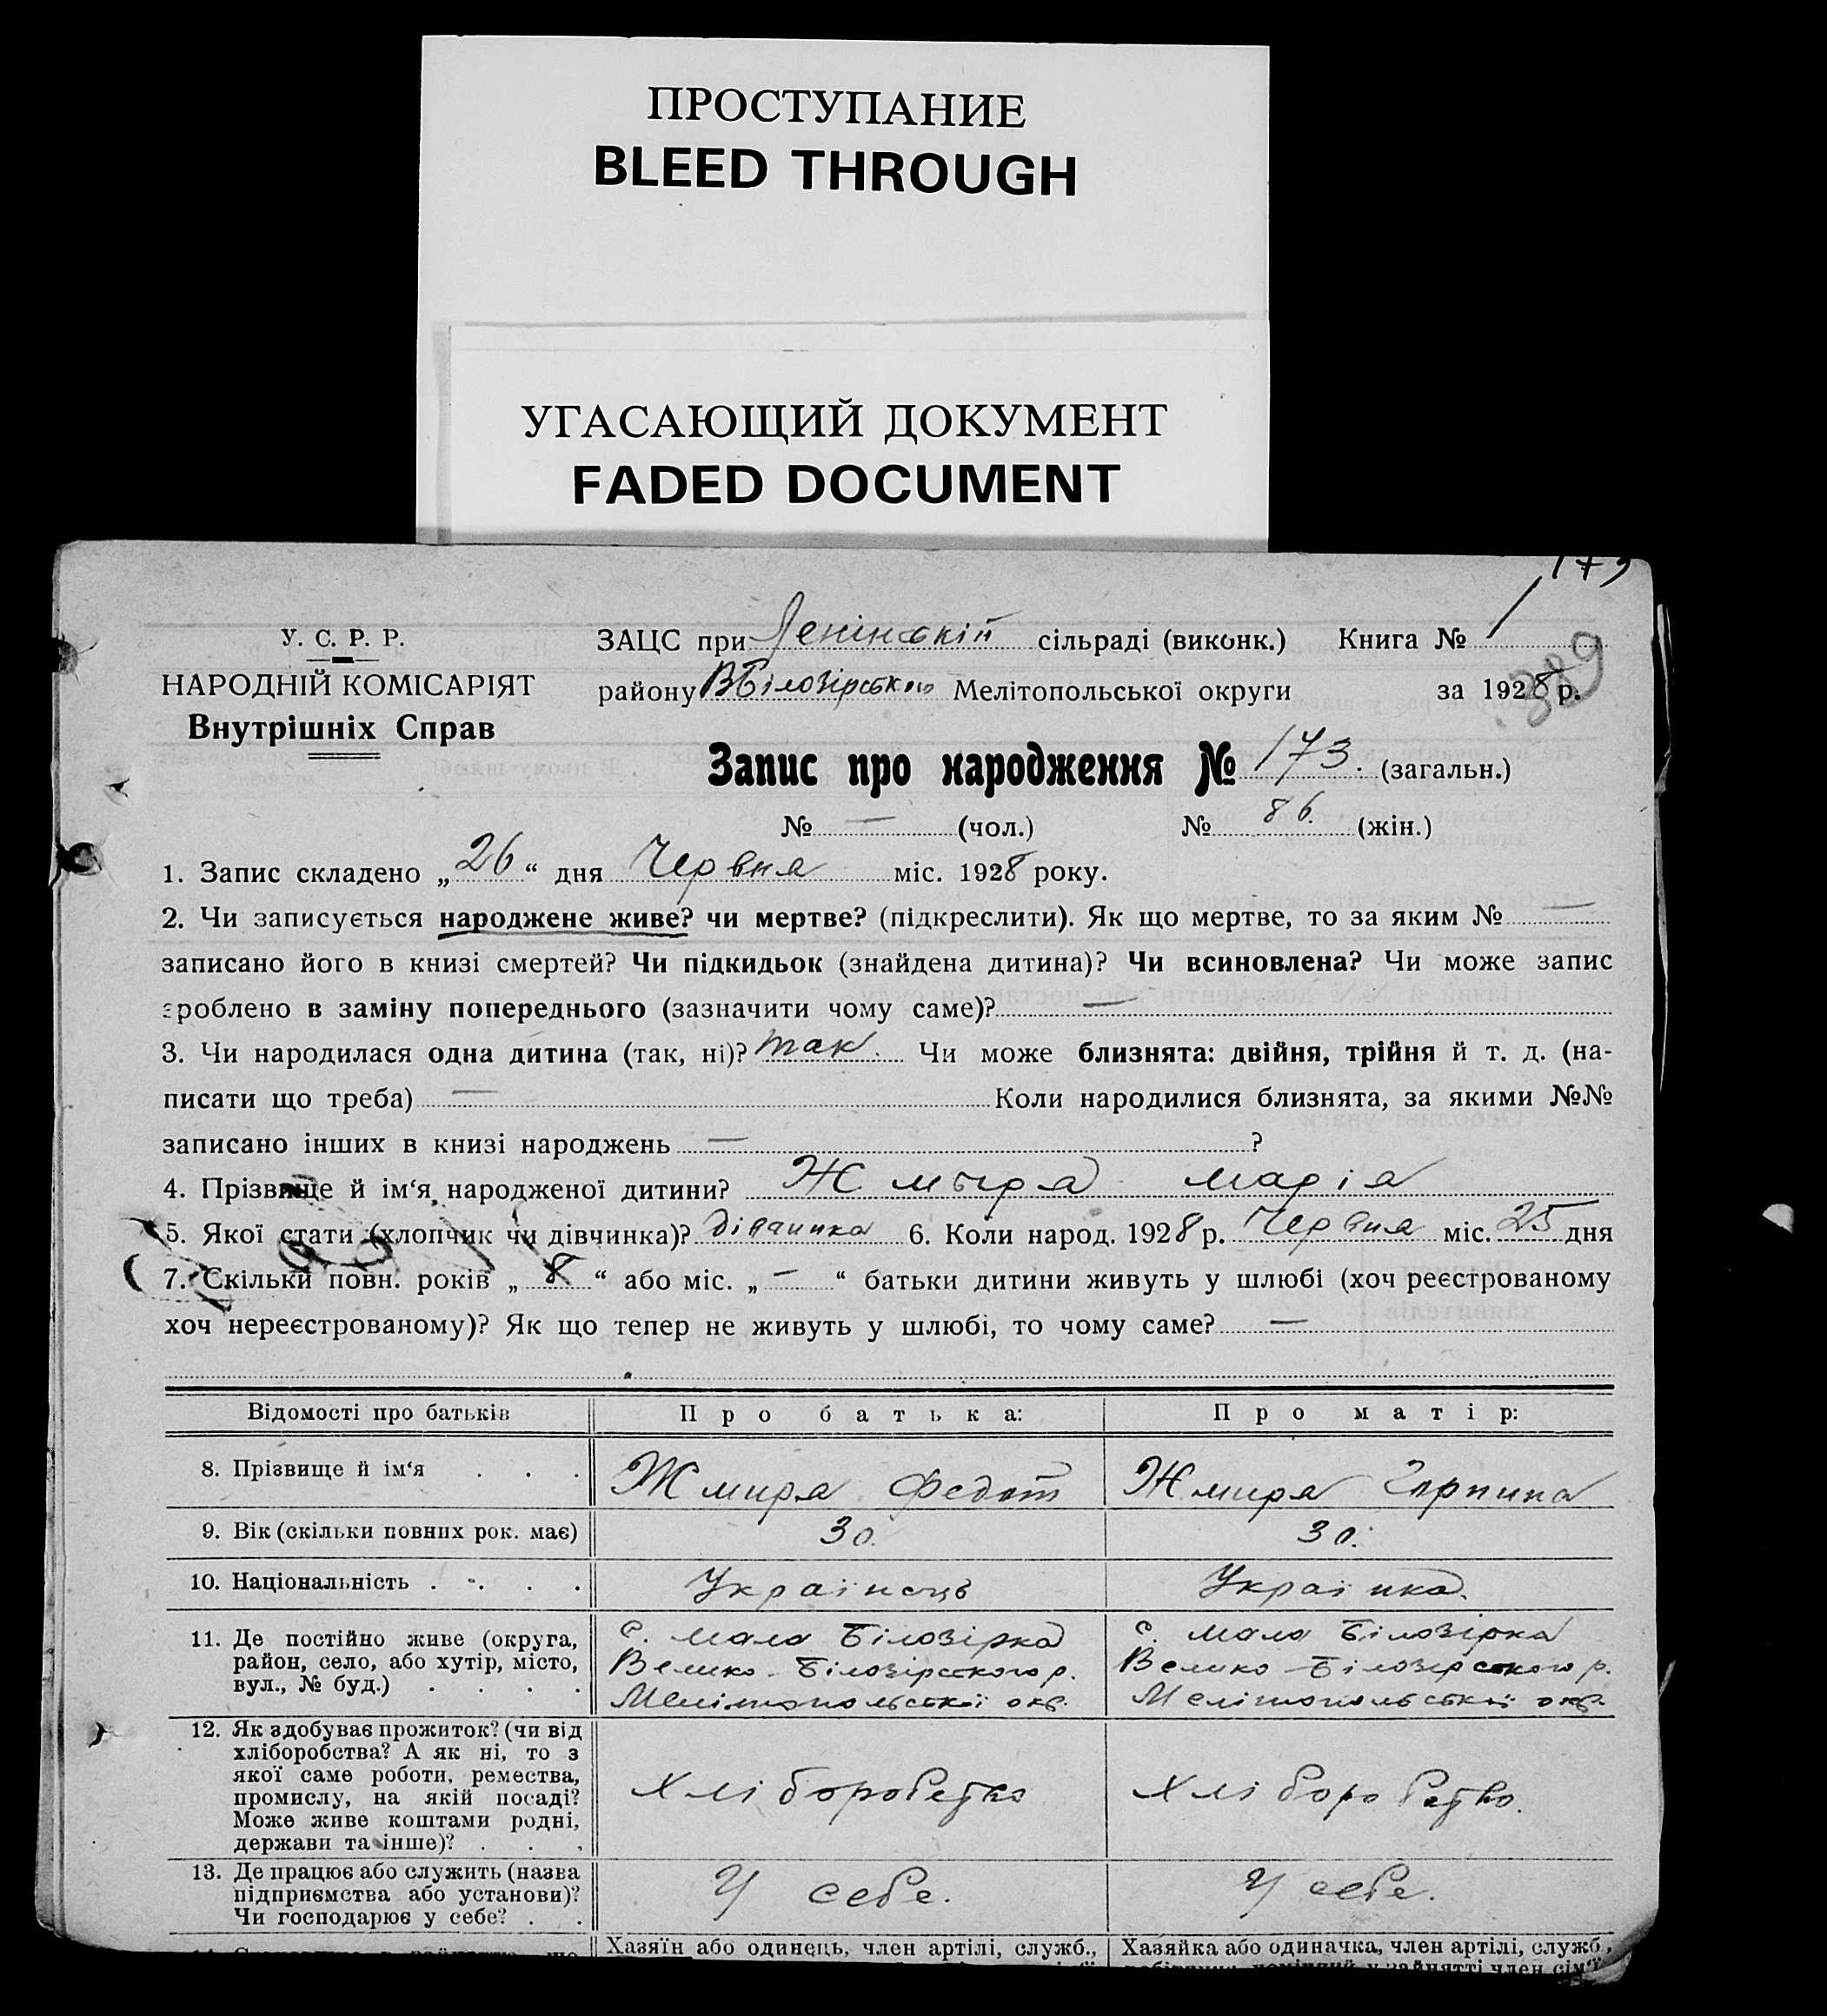 ПРОСТУПАНИЕ
BLEED THROUGH
УГАСАЮЩИЙ ДОКУМЕНТ
FADED DOCUMENT
У. С. Р. Р.
НАРОДНІЙ КОМІСАРІЯТ
Внутрішніх Справ
ЗАЦС при Ленінскій сільраді (виконк.) Книга № 1
389
району ВБілозірського Мелітопольської округи за 1928 р.
Запис про народження № 173. (загальн.)
№ — (чол.) № 86. (жін.)
1. Запис складено „26“ дня Червня міс. 1928 року.
2. Чи записується народжене живе? чи мертве? (підкреслити). Як що мертве, то за яким № —
записано його в книзі смертей? Чи підкидьок (знайдена дитина)? Чи всиновлена? Чи може запис
зроблено в заміну попереднього (зазначити чому саме)? —
3. Чи народилася одна дитина (так, ні)? так. Чи може близнята: двійня, трійня й т. д. (на-
писати що треба) — Коли народилися близнята, за якими №№
записано інших в книзі народжень — ?
4. Прізвище й ім‘я народженої дитини? Жмыра марія
5. Якої стати (хлопчик чи дівчинка)? дівчинка 6. Коли народ. 1928 р. Червня міс. 25 дня
7. Скільки повн. років „8“ або міс. „—“ батьки дитини живуть у шлюбі (хоч реєстрованому
хоч нереєстрованому)? Як що тепер не живуть у шлюбі, то чому саме? —
Відомості про батьків Про батька: Про матір:
8. Прізвище й ім‘я . . . Жмира Федот Жмира Гарпина
9. Вік (скільки повних рок. має) 30. 30.
10. Національність . . . . Українець Українка.
11. Де постійно живе (округа,
район, село, або хутір, місто,
вул., № буд.) . . . .
с. мала Білозірка
Велико-Білозірского р.
Мелітопольської окр.
с. мала Білозірка
Велико-Білозірского р.
Мелітопольської окр.
12. Як здобуває прожиток? (чи від
хліборобства? А як ні, то з
якої саме роботи, ремества,
промислу, на якій посаді?
Може живе коштами родні,
держави та інше)? . . .
Хліборобство
Хліборобство.
13. Де працює або служить (назва
підприємства або установи)?
Чи господарює у себе? . .
У себе.
У себе.
Хазяїн або одинець, член артілі, служб.,
Хазяйка або одиначка, член артілі, служб.,